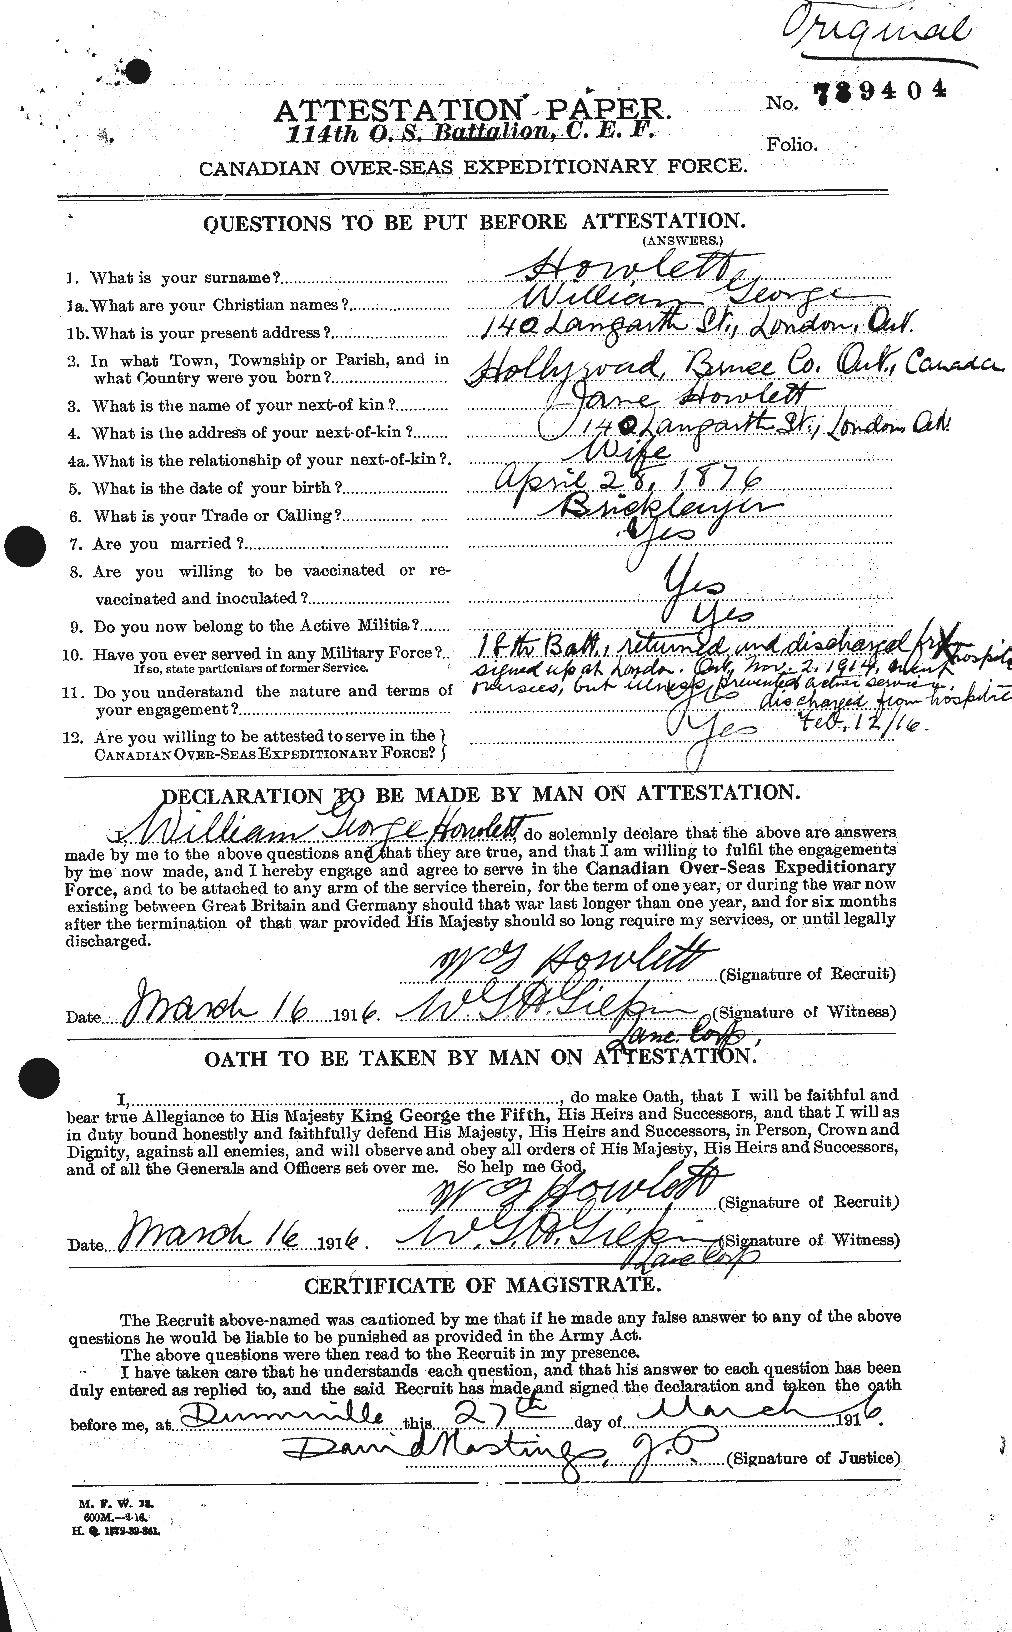 Original
No. 739404
ATTESTATION PAPER.
114th O. S. Battalion, C. E. F.
Folio.
CANADIAN OVER-SEAS EXPEDITIONARY FORCE.
QUESTIONS TO BE PUT BEFORE ATTESTATION.
(ANSWERS.)
1. What is your surname? Howlett
1a. What are your Christian names? William George
1b. What is your present address? 140 Langarth St., London, Ont.
2. In what Town, Township or Parish, and in
what Country were you born? Hollyrood, Bruce Co. Ont., Canada
3. What is the name of your next-of kin? Jane Howlett
4. What is the address of your next-of-kin? 140 Langarth St., London Ont.
4a. What is the relationship of your next-of-kin? Wife
5. What is the date of your birth? April 28, 1876
6. What is your Trade or Calling? Bricklayer
7. Are you married? Yes
8. Are you willing to be vaccinated or re-
vaccinated and inoculated? Yes
9. Do you now belong to the Active Militia? Yes
10. Have you ever served in any Military Force? 18th Batt., returned and discharged from hospital
If so, state particulars of former Service. signed up at London. Ont., Nov. 2, 1914, went
11. Do you understand the nature and terms of overseas, but illness prevented active service,
your engagement? Yes discharged from hospital
Feb. 12/16.
12. Are you willing to be attested to serve in the
CANADIAN OVER-SEAS EXPEDITIONARY FORCE? Yes
DECLARATION TO BE MADE BY MAN ON ATTESTATION.
I, William George Howlett, do solemnly declare that the above are answers
made by me to the above questions and that they are true, and that I am willing to fulfil the engagements
by me now made, and I hereby engage and agree to serve in the Canadian Over-Seas Expeditionary
Force, and to be attached to any arm of the service therein, for the term of one year, or during the war now
existing between Great Britain and Germany should that war last longer than one year, and for six months
after the termination of that war provided His Majesty should so long require my services, or until legally
discharged.
W G Howlett (Signature of Recruit)
Date March 16 1916. W. G. A. (Signature of Witness)
Lance Corp.
OATH TO BE TAKEN BY MAN ON ATTESTATION.
I, , do make Oath, that I will be faithful and
bear true Allegiance to His Majesty King George the Fifth, His Heirs and Successors, and that I will as
in duty bound honestly and faithfully defend His Majesty, His Heirs and Successors, in Person, Crown and
Dignity, against all enemies, and will observe and obey all orders of His Majesty, His Heirs and Successors,
and of all the Generals and Officers set over me. So help me God.
W G Howlett (Signature of Recruit)
Date March 16 1916. W. G. A. (Signature of Witness)
Lance Corp
CERTIFICATE OF MAGISTRATE.
The Recruit above-named was cautioned by me that if he made any false answer to any of the above
questions he would be liable to be punished as provided in the Army Act.
The above questions were then read to the Recruit in my presence.
I have taken care that he understands each question, and that his answer to each question has been
duly entered as replied to, and the said Recruit has made and signed the declaration and taken the oath
before me, at Dunnville this 27th day of March 1916.
David Hastings, J.P. (Signature of Justice)
M. F. W. 23.
600M.—2-16.
H. Q. 1772-39-841.